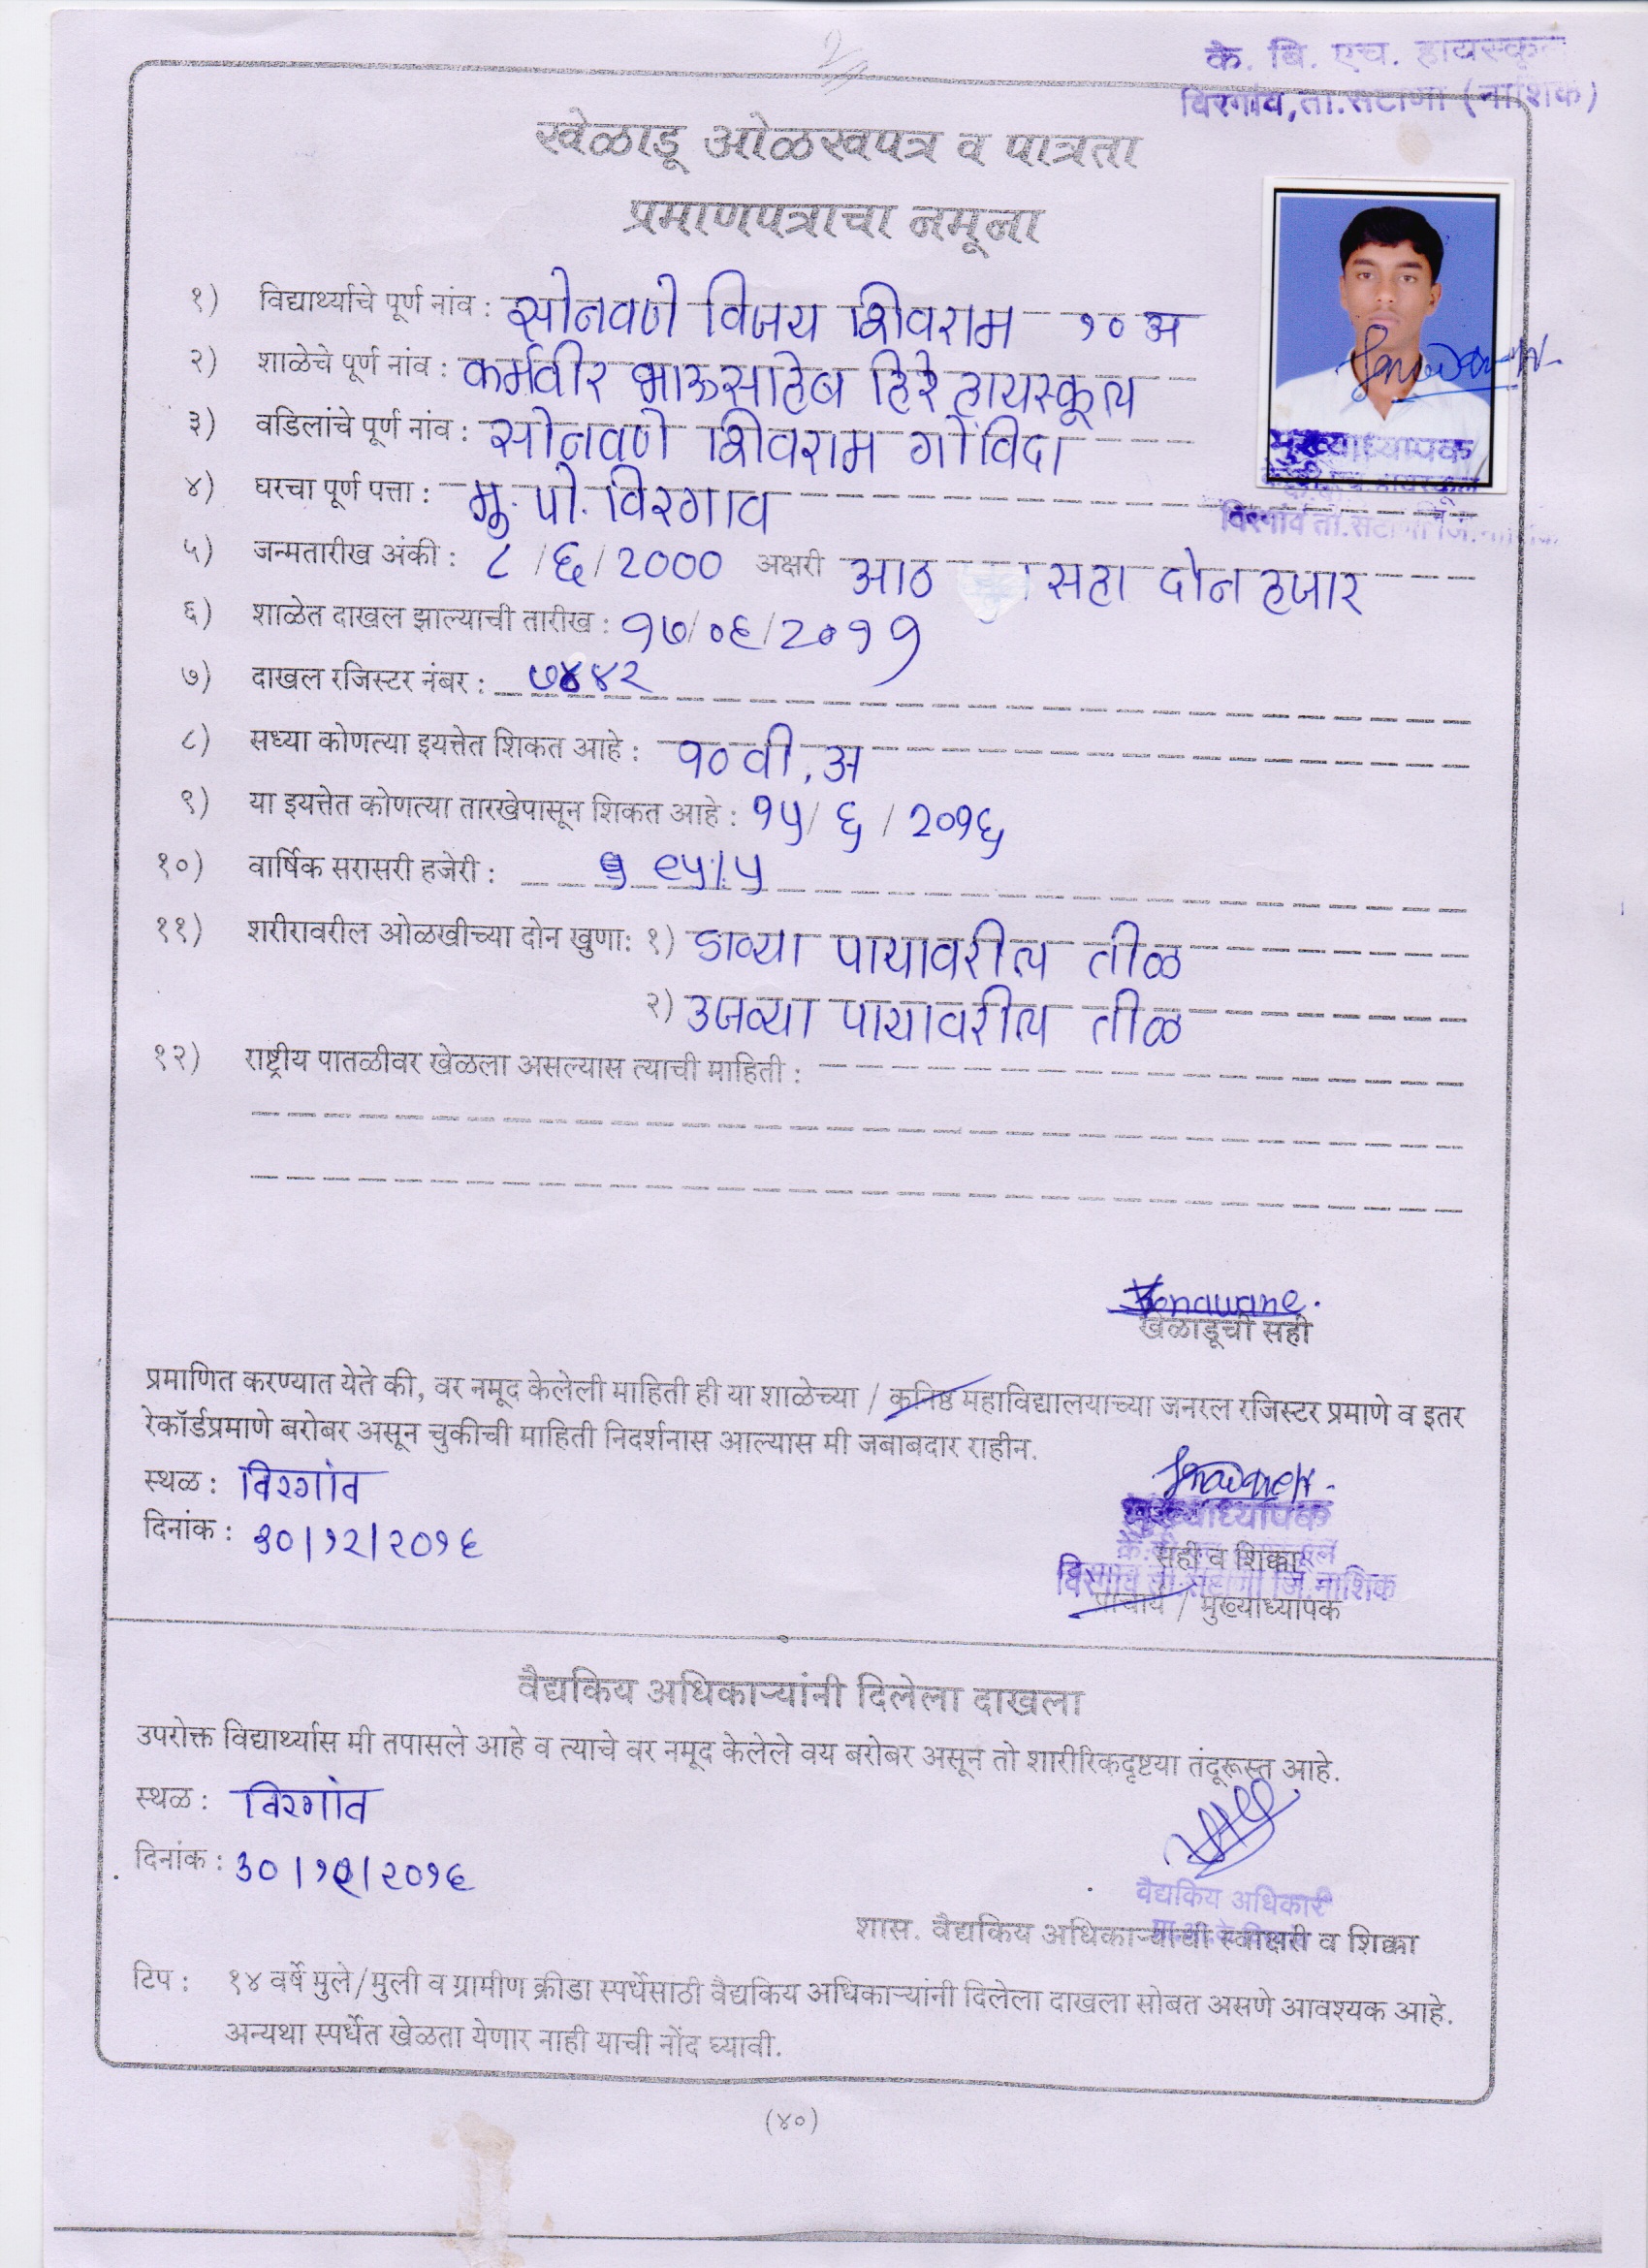 के. बि. एच. हायस्कूल
विरगांव,ता.सटाणा (नाशिक)
खेळाडू ओळखपत्र व पात्रता
प्रमाणपत्राचा नमूना
१) विद्यार्थ्याचे पूर्ण नांव : सोनवणे विजय शिवराम १० अ
२) शाळेचे पूर्ण नांव : कर्मवीर भाऊसाहेब हिरे हायस्कूल
३) वडिलांचे पूर्ण नांव : सोनवणे शिवराम गोविंदा
४) घरचा पूर्ण पत्ता : मु. पो. विरगाव
मुख्याध्यापक
विरगांव ता.सटाणा जि.
५) जन्मतारीख अंकी : ८/६/2000 अक्षरी आठ सहा दोन हजार
६) शाळेत दाखल झाल्याची तारीख : १७/०६/2०११
७) दाखल रजिस्टर नंबर : ७४४२
८) सध्या कोणत्या इयत्तेत शिकत आहे : १० वी. अ
९) या इयत्तेत कोणत्या तारखेपासून शिकत आहे : १५/ ६ / २०१६
१०) वार्षिक सरासरी हजेरी :
११) शरीरावरील ओळखीच्या दोन खुणा: १) डाव्या पायावरील तीळ
२) उजव्या पायावरील तीळ
१२) राष्ट्रीय पातळीवर खेळला असल्यास त्याची माहिती :
Sonawane.
खेळाडूची सही
प्रमाणित करण्यात येते की, वर नमूद केलेली माहिती ही या शाळेच्या / कनिष्ठ महाविद्यालयाच्या जनरल रजिस्टर प्रमाणे व इतर
रेकॉर्डप्रमाणे बरोबर असून चुकीची माहिती निदर्शनास आल्यास मी जबाबदार राहीन.
स्थळ : विरगांव
दिनांक : ३०/१२/२०१६
मुख्याध्यापक
सही व शिक्का
विरगांव ता.सटाणा जि.नाशिक
प्राचार्य / मुख्याध्यापक
वैद्यकिय अधिकाऱ्यांनी दिलेला दाखला
उपरोक्त विद्यार्थ्यास मी तपासले आहे व त्याचे वर नमूद केलेले वय बरोबर असून तो शारीरिकदृष्टया तंदूरूस्त आहे.
स्थळ : विरगांव
दिनांक : ३०/१२/२०१६
वैद्यकिय अधिकारी
शास. वैद्यकिय अधिकाऱ्याची स्वाक्षरी व शिक्का
टिप : १४ वर्षे मुले/मुली व ग्रामीण क्रीडा स्पर्धेसाठी वैद्यकिय अधिकाऱ्यांनी दिलेला दाखला सोबत असणे आवश्यक आहे.
अन्यथा स्पर्धेत खेळता येणार नाही याची नोंद घ्यावी.
(४०)